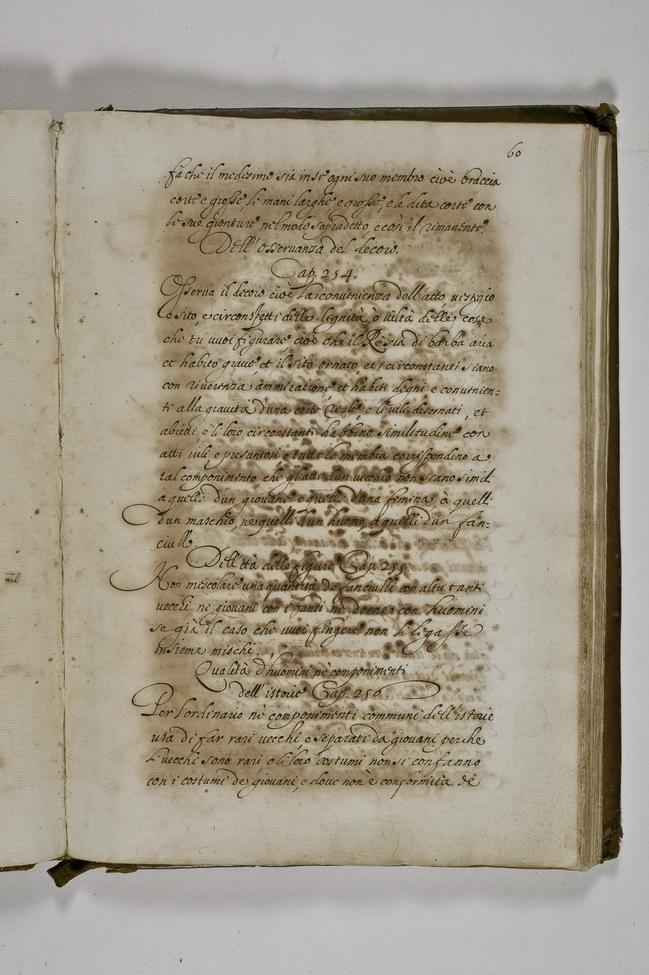 60
fa che il medesimo sia in se ogni suo membro cioè braccia
corte e grosse le mani larghe e grosse, e le dita corte con
le sue gionture nel modo sopradetto e così il rimanente.
Dell'osservanza del decoro.
Cap. 254.
Osserva il decoro cioè la convenienza dell'atto, vestigio
e sito, e circonspetti delle dignità, o viltà delle cose
che tu vuoi figurare cioè che il Rè sia di barba aria
et habito grave et il sito ornato, et i circonstanti siano
con riverenza, ammiratione et habiti degni e convenien=
ti alla gravità d'una corte reale e li vili disornati, et
abietti e li loro circonstanti habbino similitudine con
atti vili e presuntosi e tutte le membra corrispondino a
tal componimento che gli atti d'un vecchio non siano simili
a quelli d'un giovane e quelli d'una femina à quelli
d'un maschio, ne quelli d'un huomo à quelli d'un fan=
ciullo.
Dell'età delle figure Cap. 255.
Non mescolare una quantità da fanciulli con altri tanti
vecchi ne giovani con i fanti ne donne con huomini
se già il caso che vuoi fingere non li legasse
insieme mischi.
Qualità d'huomini ne componimenti
dell'istorie Cap. 256.
Per l'ordinario ne componimenti communi dell'istorie
usa di far rari vecchi e separati da giovani perche
li vecchi sono rari e li loro costumi non si confanno
con i costumi de giovani, e dove non è conformità de